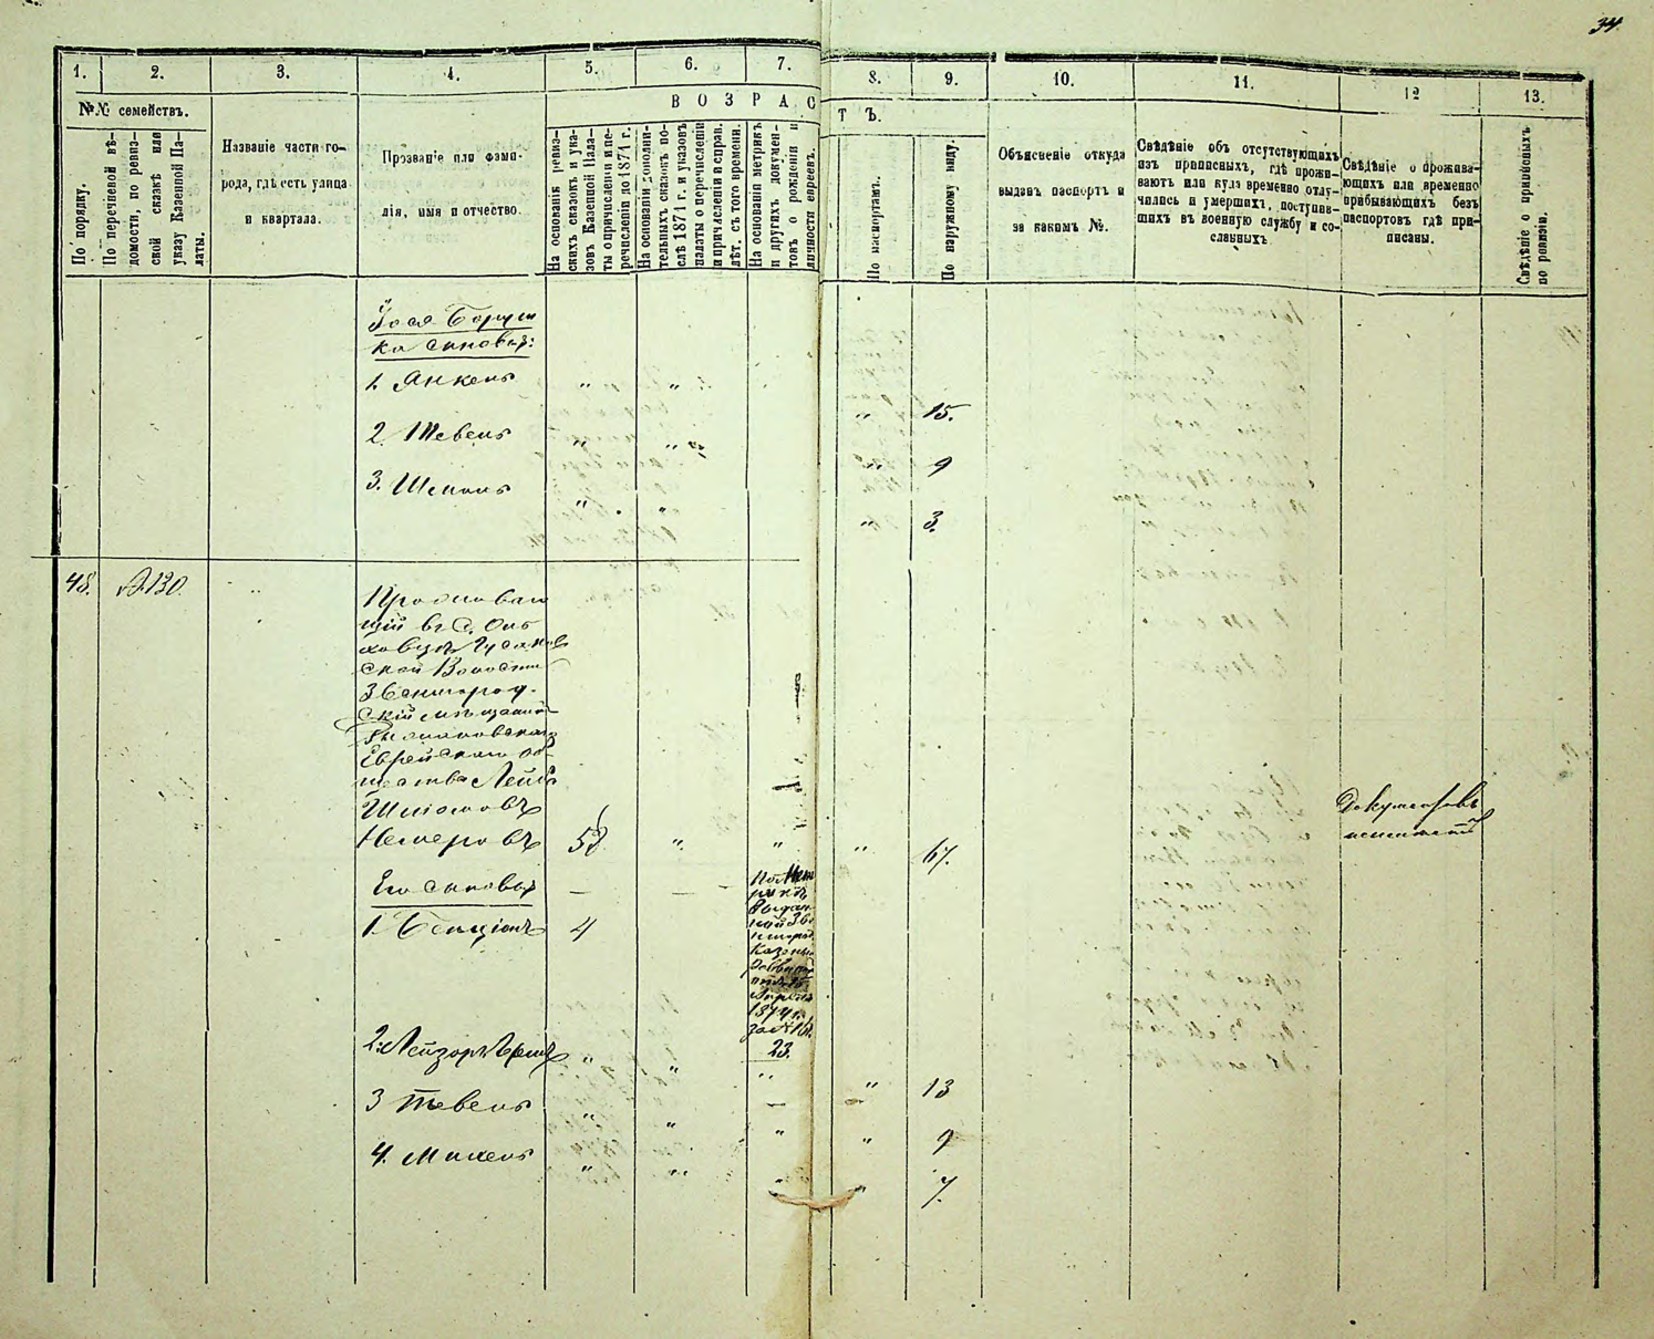 34
1.
2.
3.
4.
5.
6.
7.
8.
9.
10.
11.
12
13.
№№ семействъ.
По порядку.
По перечневой вѣ-
домости, по ревиз-
ской сказкѣ или
указу Казенной Па-
латы.
Названіе части го-
рода, гдѣ есть улица
и квартала.
Прозваніе или фами-
лія, имя и отчество.
ВОЗРАС
ТЪ.
На основаніи ревиз-
скихъ сказокъ и ука-
зовъ Казенной Пала-
ты о причисленіи и пе-
речисленіи до 1871 г.
На основаніи дополни-
тельныхъ сказокъ по-
слѣ 1871 г. и указовъ
палаты о перечисленіи
и причисленіи и справ.
лѣт. съ того времени.
На основаніи метрикъ
и другихъ докумен-
товъ о рожденіи и
личности евреевъ.
По паспортамъ.
По наружному виду.
Объясненіе откуда
выданъ паспортъ и
за какимъ №.
Свѣдѣніе объ отсутствующихъ
изъ приписныхъ, гдѣ прожи-
ваютъ или куда временно отлу-
чились и умершихъ, поступив-
шихъ въ военную службу и со-
сланныхъ
Свѣдѣніе о прожива-
ющихъ или временно
прибывающихъ безъ
паспортовъ гдѣ при-
писаны.
Свѣдѣніе о приписныхъ
по ревизіи.
ка сыновья:
1. Янкель " " " 15.
2. Тевель " " " 9
3. Шепсель " " " 3.
48. №130
Проживаю
щій въ С.
ской Волости
Звенигород-
скій мѣщанинъ
Еврейскаго об-
щества Лейба
Шліомовъ
Немеровъ 58 " " " 67.
Документовъ
Его сыновья
1. Бенціонъ 4
По Мет
рикѣ
Выдан
ной Зве
нигород
Казенны
Апреля
1874 г.
23.
2. Лейзоръ Герш " " " 13
3 Тевель " " " " 9
4. Михель " " " " 7.